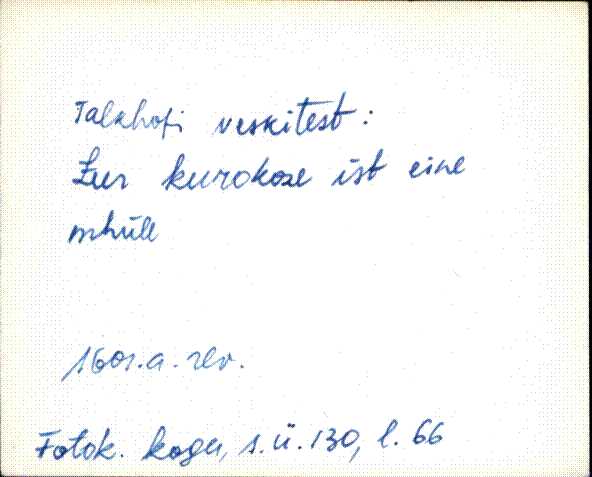 Talkhofi veskitest:
Zur kurokose ist eine
mhüll
1601.a. rev.
Fotok. kogu, s.ü. 130, l. 66